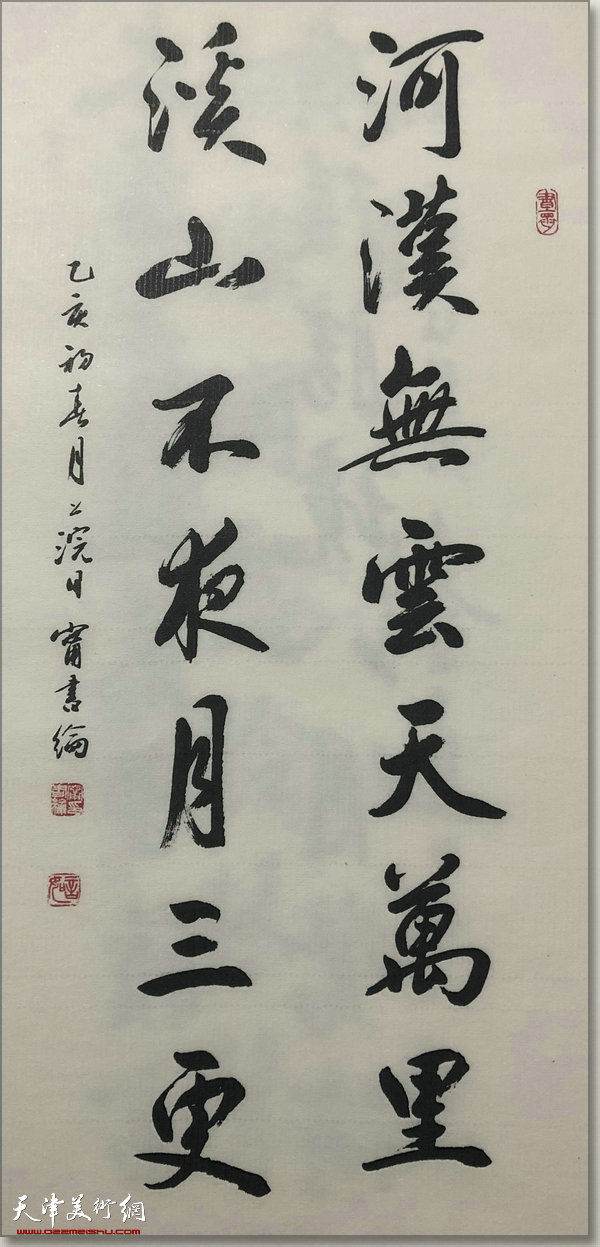 河漢無雲天萬里
溪山不夜月三更
乙亥初春月上浣日 甯書綸
天津美術網
www.022meishu.com